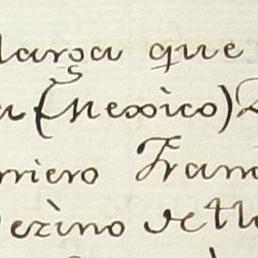 larga que
a (Mexico)
rriero Fran
Vezino de